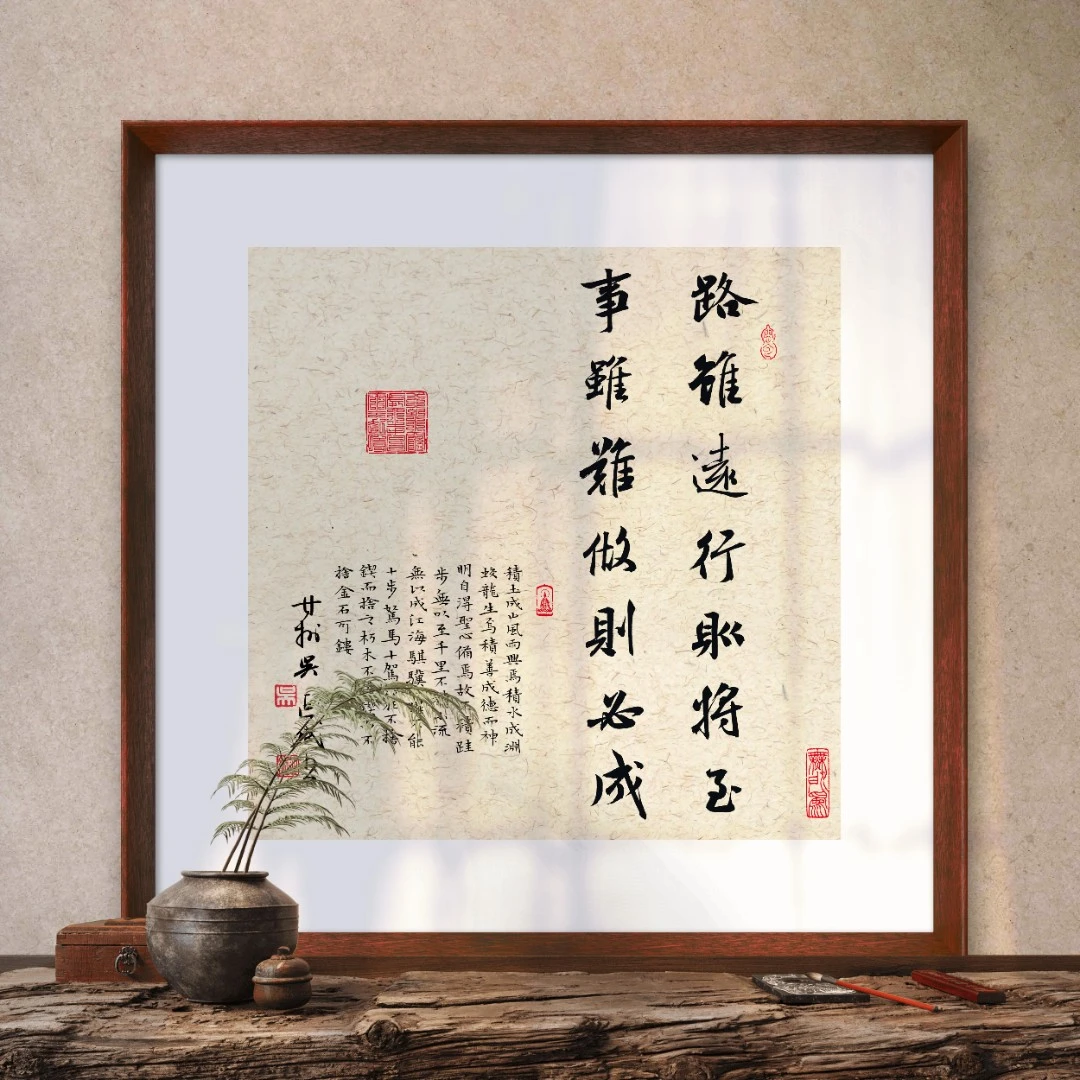 路雖遠行則將至
事雖難做則必成
積土成山風雨興焉積水成淵
蛟龍生焉積善成德而神
明自得聖心備焉故積跬
步無以至千里不流
無以成江海騏驥能
十步駑馬十駕不捨
鍥而捨之朽木不不
捨金石可鏤
吳